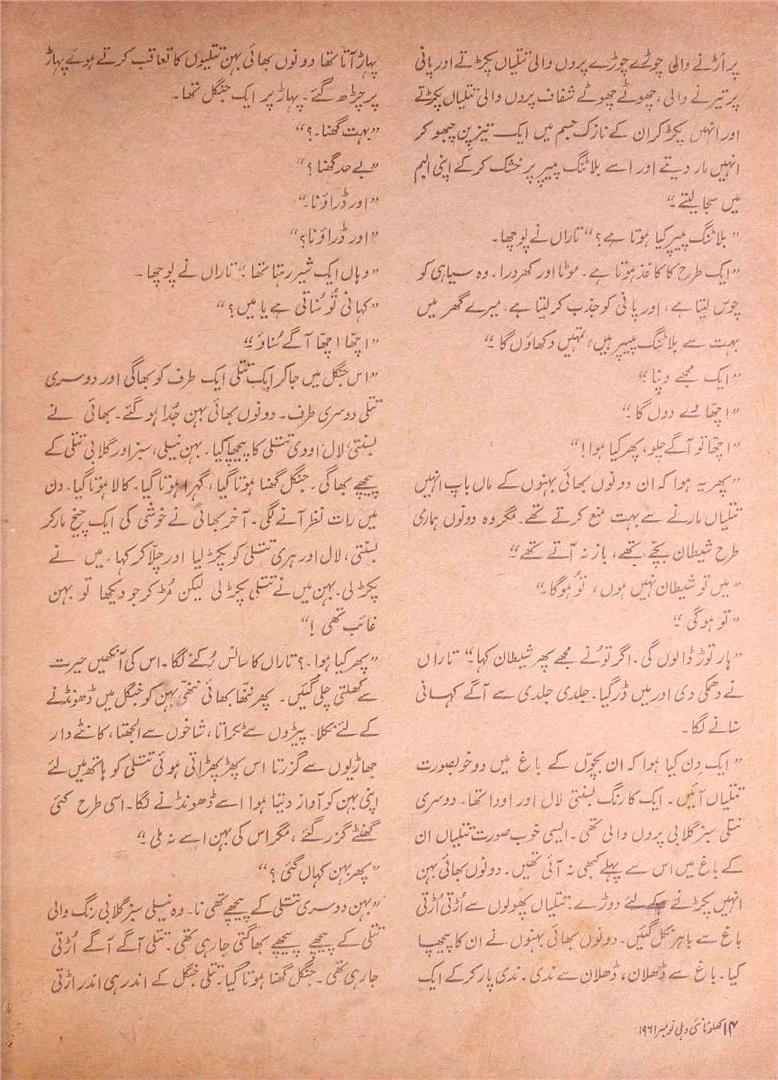 پر اُڑنے والی چوڑے چوڑے پروں والی تتلیاں پکڑتے اور پانی
پر تیرنے والی، چھوٹے چھوٹے شفاف پروں والی تتلیاں پکڑتے
اور انہیں پکڑ کر ان کے نازک جسم میں ایک تیز پن چبھو کر
انہیں مار دیتے اور اسے بلاٹنگ پیپر پر خشک کر کے اپنی البم
میں سجا لیتے۔“
”بلاٹنگ پیپر کیا ہوتا ہے؟“ تاراں نے پوچھا۔
”ایک طرح کا کاغذ ہوتا ہے۔ موٹا اور کھردرا۔ وہ سیاہی کو
چوس لیتا ہے، اور پانی کو جذب کر لیتا ہے۔ میرے گھر میں
بہت سے بلاٹنگ پیپر ہیں، تمہیں دکھاؤں گا۔“
”ایک مجھے دینا۔“
”اچھا دے دوں گا۔“
”اچھا تو آگے چلو، پھر کیا ہوا!“
”پھر یہ ہوا کہ ان دونوں بھائی بہنوں کے ماں باپ انہیں
تتلیاں مارنے سے بہت منع کرتے تھے۔ مگر وہ دونوں ہماری
طرح شیطان بچے تھے، باز نہ آتے تھے۔“
”میں تو شیطان نہیں ہوں، تُو ہوگا۔“
”تو ہوگی۔“
”مار توڑ ڈالوں گی۔ اگر تُو نے مجھے پھر شیطان کہا۔“ تاراں
نے دھمکی دی اور میں ڈر گیا۔ جلدی جلدی سے آگے کہانی
سنانے لگا۔
”ایک دن کیا ہوا کہ ان بچوں کے باغ میں دو خوبصورت
تتلیاں آئیں۔ ایک کا رنگ بسنتی لال اور اودا تھا۔ دوسری
تتلی سبز گلابی پروں والی تھی۔ ایسی خوب صورت تتلیاں ان
کے باغ میں اس سے پہلے کبھی نہ آئی تھیں۔ دونوں بھائی بہن
انہیں پکڑنے کے لئے دوڑے۔ تتلیاں پھولوں سے اُڑتی اُڑتی
باغ سے باہر نکل گئیں۔ دونوں بھائی بہنوں نے ان کا پیچھا
کیا۔ باغ سے ڈھلان، ڈھلان سے ندی۔ ندی پار کر کے ایک
پہاڑ آتا تھا دونوں بھائی بہن تتلیوں کا تعاقب کرتے ہوئے پہاڑ
پر چڑھ گئے۔ پہاڑ پر ایک جنگل تھا۔
”بہت گھنا۔؟“
”بے حد گھنا؟“
”اور ڈراؤنا۔“
”اور ڈراؤنا؟“
”وہاں ایک شیر رہتا تھا۔“ تاراں نے پوچھا۔
”کہانی تُو سُناتی ہے یا میں؟“
”اچھا اچھا آگے سُناؤ۔“
”اس جنگل میں جا کر ایک تتلی ایک طرف کو بھاگی اور دوسری
تتلی دوسری طرف۔ دونوں بھائی بہن جُدا ہو گئے۔ بھائی نے
بسنتی لال اودی تتلی کا پیچھا کیا۔ بہن نیلی، سبز اور گلابی تتلی کے
پیچھے بھاگی۔ جنگل گھنا ہوتا گیا، گہرا ہوتا گیا۔ کالا ہوتا گیا۔ دن
میں رات نظر آنے لگی۔ آخر بھائی نے خوشی کی ایک چیخ مار کر
بسنتی، لال اور ہری تتلی کو پکڑ لیا اور چلّا کر کہا۔ میں نے
پکڑ لی۔ بہن میں نے تتلی پکڑ لی لیکن مُڑ کر جو دیکھا تو بہن
غائب تھی!“
”پھر کیا ہوا۔؟ تاراں کا سانس رُکنے لگا۔ اس کی آنکھیں حیرت
سے کھلتی چلی گئیں۔ پھر ننھا بھائی ننھی بہن کو جنگل میں ڈھونڈنے
کے لئے نکلا۔ پیڑوں سے ٹکراتا، شاخوں سے اُلجھتا، کانٹے دار
جھاڑیوں سے گزرتا اس پھڑپھڑاتی ہوئی تتلی کو ہاتھ میں لئے
اپنی بہن کو آواز دیتا ہوا اسے ڈھونڈنے لگا۔ اسی طرح کئی
گھنٹے گزر گئے، مگر اس کی بہن اسے نہ ملی۔“
”پھر بہن کہاں گئی؟“
”بہن دوسری تتلی کے پیچھے تھی نا۔ وہ نیلی سبز گلابی رنگ والی
تتلی کے پیچھے پیچھے بھاگتی جا رہی تھی۔ تتلی آگے آگے اُڑتی
جا رہی تھی۔ جنگل گھنا ہوتا گیا۔ تتلی جنگل کے اندر ہی اندر اڑتی
۱۴ کھلونا نئی دہلی نومبر ۱۹۶۱